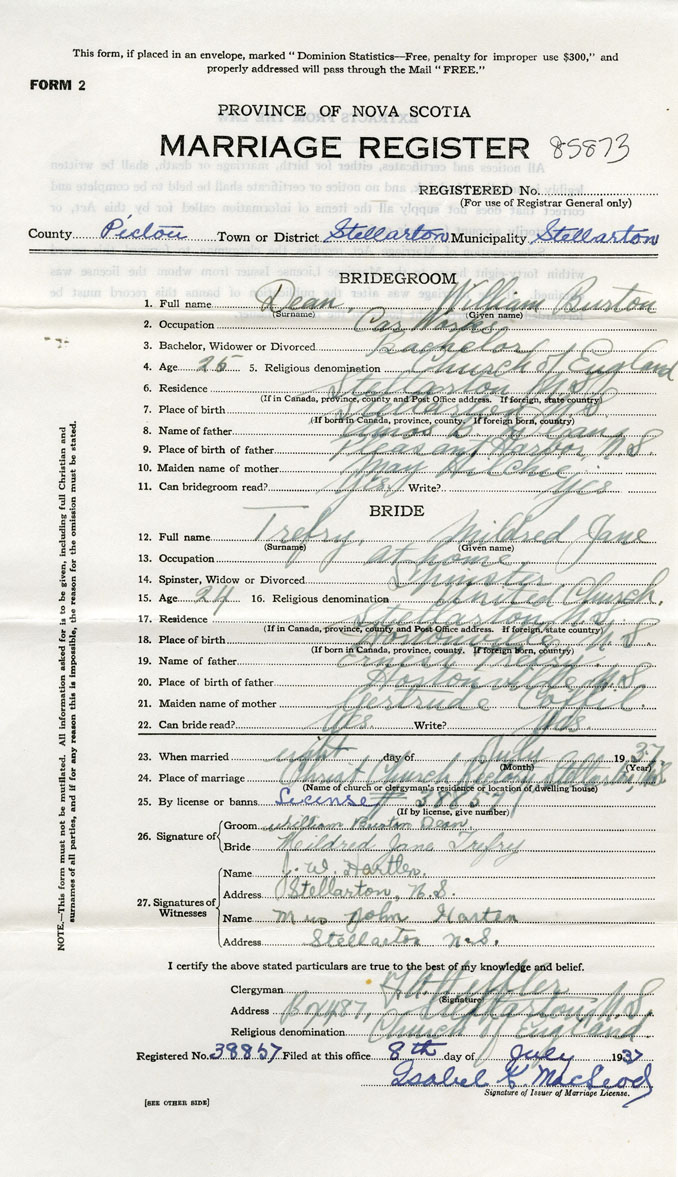 This form, if placed in an envelope, marked "Dominion Statistics—Free, penalty for improper use $300," and
properly addressed will pass through the Mail "FREE."
FORM 2
PROVINCE OF NOVA SCOTIA
MARRIAGE REGISTER 85873
REGISTERED No.
(For use of Registrar General only)
County Pictou Town or District Stellarton Municipality Stellarton
BRIDEGROOM
1. Full name Dean, William Burton
(Surname) (Given name)
2. Occupation Car
3. Bachelor, Widower or Divorced Bachelor
4. Age 25 5. Religious denomination Church of England
6. Residence Stellarton N.S.
(If in Canada, province, county and Post Office address. If foreign, state country)
7. Place of birth
(If born in Canada, province, county. If foreign born, country)
8. Name of father Amos
9. Place of father Pleasant Harbor N.S.
10. Maiden name of mother May
11. Can bridegroom read? Yes Write? Yes
BRIDE
12. Full name Trefry, Mildred Jane
(Surname) (Given name)
13. Occupation at home
14. Spinster, Widow or Divorced Spinster
15. Age 24 16. Religious denomination United Church
17. Residence Stellarton N.S.
(If in Canada, province, county and Post Office address. If foreign, state country)
18. Place of birth N.S.
(If born in Canada, province, county. If foreign born, country)
19. Name of father
20. Place of birth of father N.S.
21. Maiden name of mother Gertrude
22. Can bride read? Yes Write? Yes
23. When married eight day of July 1937
(Month) (Year)
24. Place of marriage Christ Church Rectory Stellarton N.S.
(Name of church or clergyman's residence or location of dwelling house)
25. By license or banns License # 38857
(If by license, give number)
26. Signature of Groom William Burton Dean
Bride Mildred Jane Trefry
27. Signatures of Witnesses Name J. W. Hartlen.
Address Stellarton, N.S.
Name Mrs John
Address Stellarton N.S.
I certify the above stated particulars are true to the best of my knowledge and belief.
Clergyman
(Signature)
Address Box 487, Stellarton N.S.
Religious denomination Church of England
Registered No. 38857 Filed at this office 8th day of July 1937
Isabel K. MacLeod
Signature of Issuer of Marriage License.
[SEE OTHER SIDE]
NOTE.—This form must not be mutilated. All information asked for is to be given, including full Christian and
surnames of all parties, and if for any reason this is impossible, the reason for the omission must be stated.